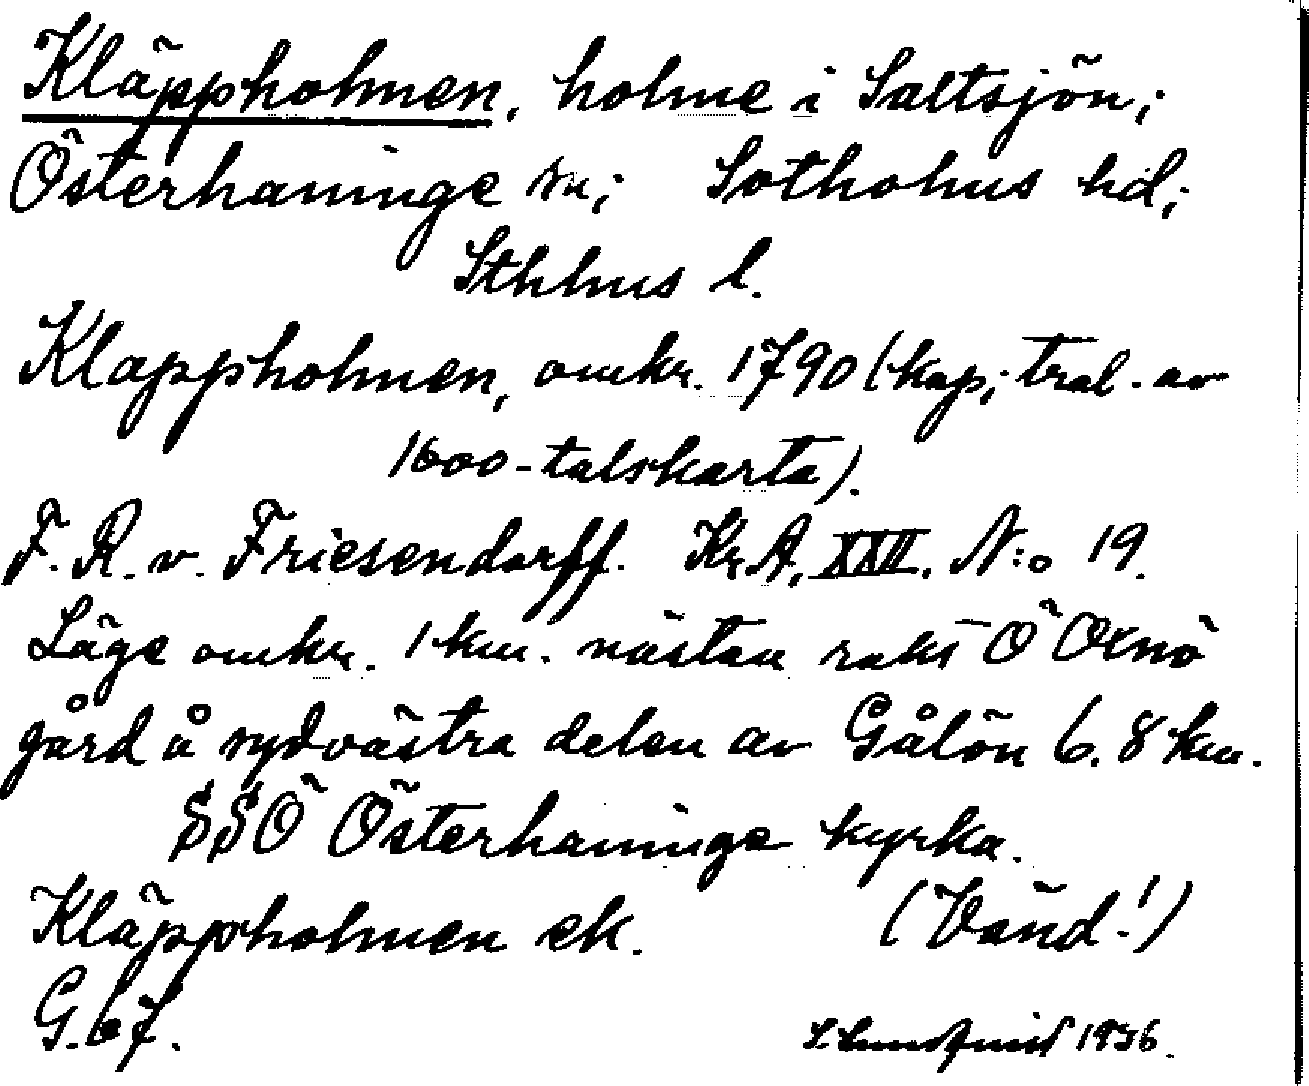 Kläppholmen, holme i Saltsjön;
Österhaninge sn; Sotholms hd;
Sthlms l.
Klappholmen, omkr. 1790 (kop; tral. av
1600-talskarta).
F. R. v. Friesendorff. Kr.A, XXII. N:o 19.
Läge omkr. 1 km. nästan rakt Ö Oxnö
gård å sydvästra delen av Gålön 6.8 km.
SSÖ Österhaninge kyrka.
Kläppholmen ek. (Vänd!)
G. 67.
S Lundquist 1936.